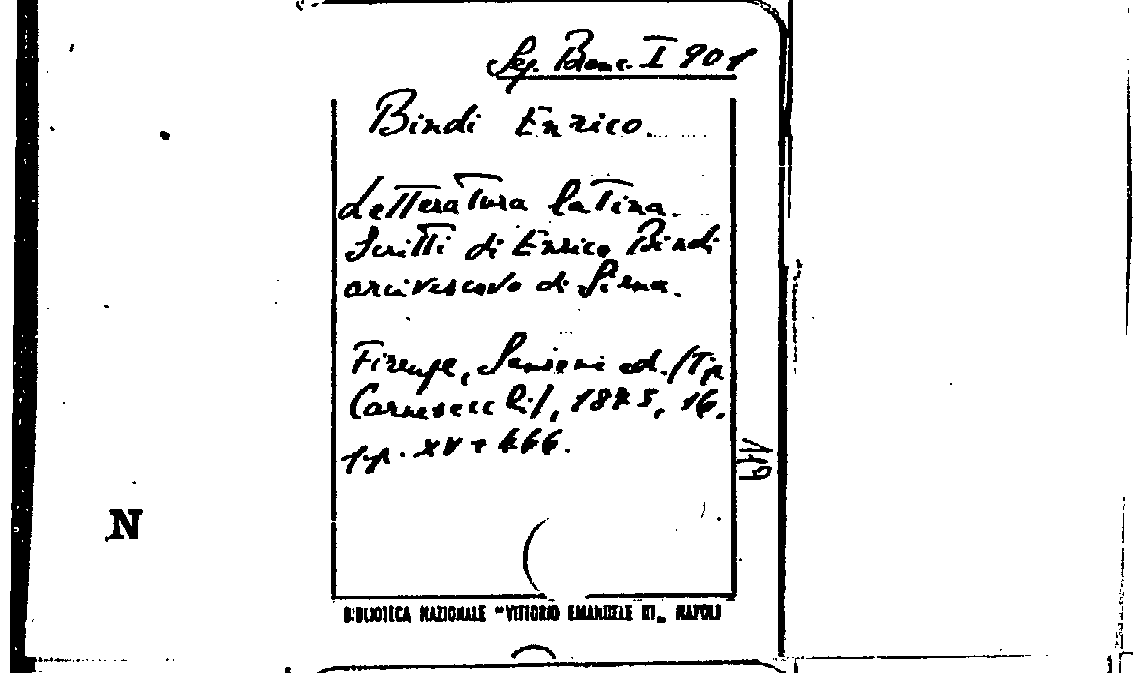 Seg. Banc. I 901
Bindi Enrico
Letteratura latina.
Scritti di Enrico Bindi
arcivescovo di Siena.
Firenze, Sansoni ed. (Tip.
Carnesecchi), 1875, 16.
pp. XV + 466.
N
BIBLIOTECA NAZIONALE "VITTORIO EMANUELE III" NAPOLI